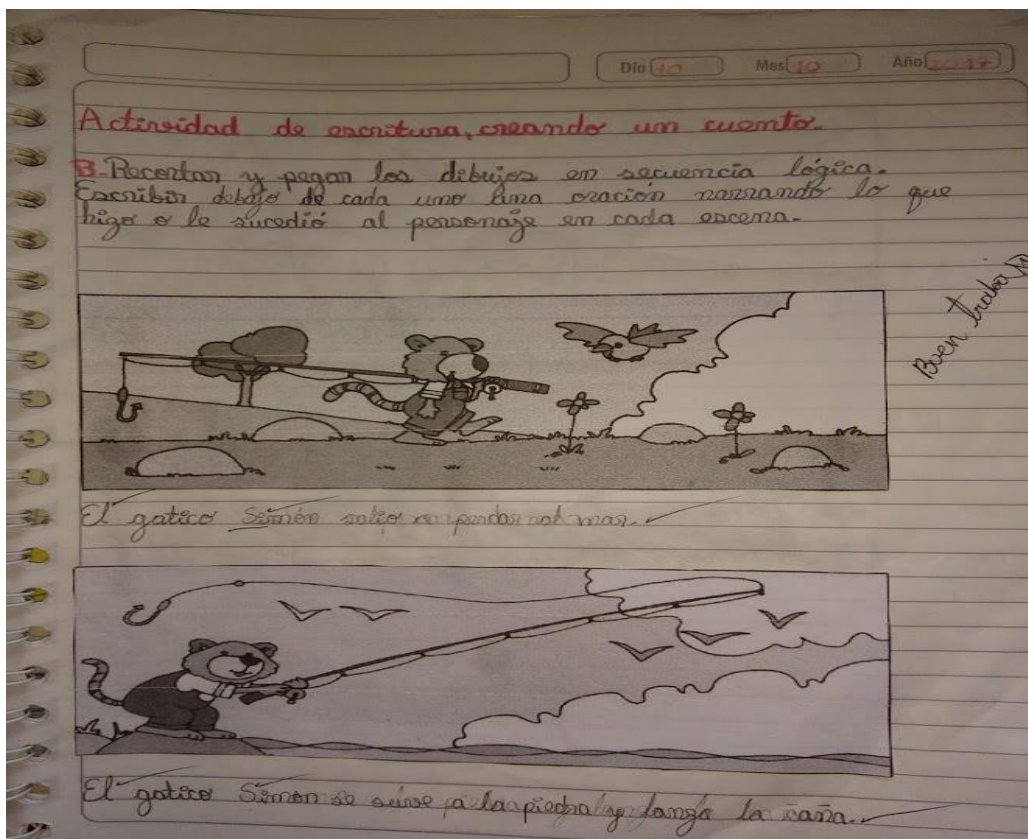 Día 10 Mes 10 Año 2017
Actividad de escritura, creando un cuento.
B-Recortar y pegar los dibujos en secuencia lógica.
Escribir debajo de cada uno una oración narrando lo que
hizo o le sucedió al personaje en cada escena.
Buen trabajo
El gatico Simón salio mar.
El gatico Simon se suive a la piedra y lanza la caña.